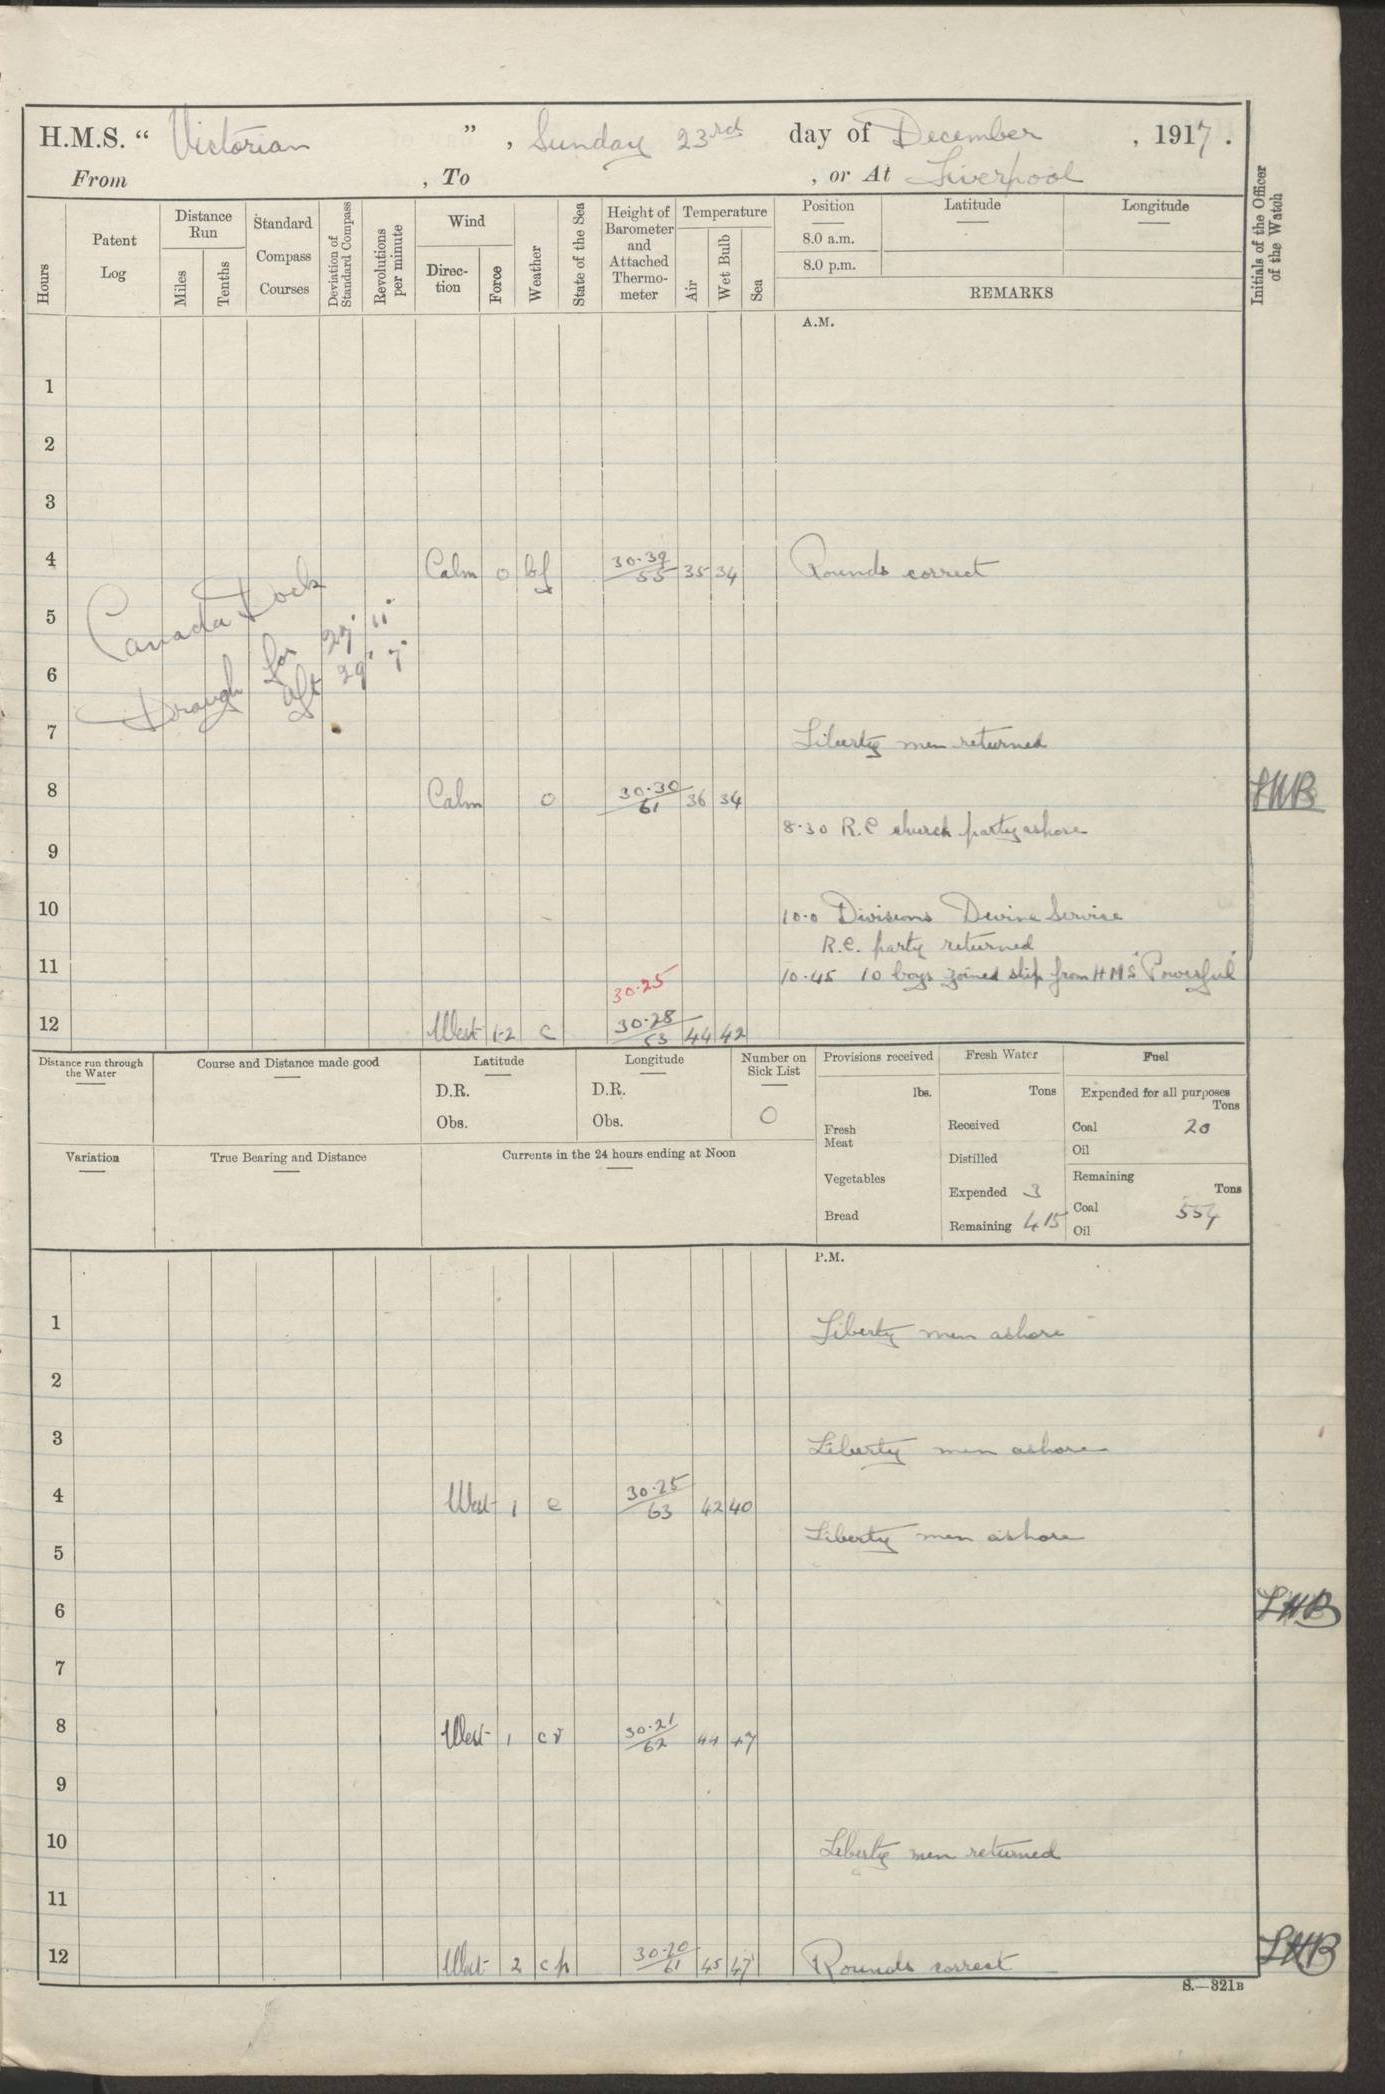 H.M.S. “ Victorian ” , Sunday 23rd day of December , 1917 .
From , To , or At Liverpool
Hours
Patent Log
Distance Run
Miles
Tenths
Standard Compass Courses
Deviation of Standard Compass
Revolutions per minute
Wind
Direc-tion
Force
Weather
State of the Sea
Height of Barometer and Attached Thermo-meter
Temperature
Air
Wet Bulb
Sea
Position
Latitude
Longitude
8.0 a.m.
8.0 p.m.
REMARKS
Initials of the Officer of the Watch
A.M.
1
2
3
4 Calm 0 bf 30·39 55 35 34 Rounds correct
Canada Dock
5
Draugh for 27' 11"
6
aft 29' 7"
7 Liberty men returned
8 Calm o 30·30 61 36 34 LHB
8·30 R.C church party ashore
9
10 10·0 Divisions Devine Service
R.C. party returned
11 10·45 10 boys joined ship from HMS "Powerful"
30·25
12 West 1-2 c 30·28 53 44 42
Distance run through the Water
Course and Distance made good
Latitude
D.R.
Obs.
Longitude
D.R.
Obs.
Number on Sick List
0
Provisions received
lbs.
Fresh Meat
Vegetables
Bread
Fresh Water
Tons
Received
Distilled
Expended 3
Remaining 415
Fuel
Expended for all purposes
Tons
Coal 20
Oil
Remaining
Tons
Coal 554
Oil
Variation
True Bearing and Distance
Currents in the 24 hours ending at Noon
P.M.
1 Liberty men ashore
2
3 Liberty men ashore
4 West 1 c 30·25 63 42 40
Liberty men ashore
5
6 LHB
7
8 West 1 c r 30·21 62 44
9
10 Liberty men returned
11
12 West 2 c p 30·20 61 45 Rounds correct LHB
S.—321B